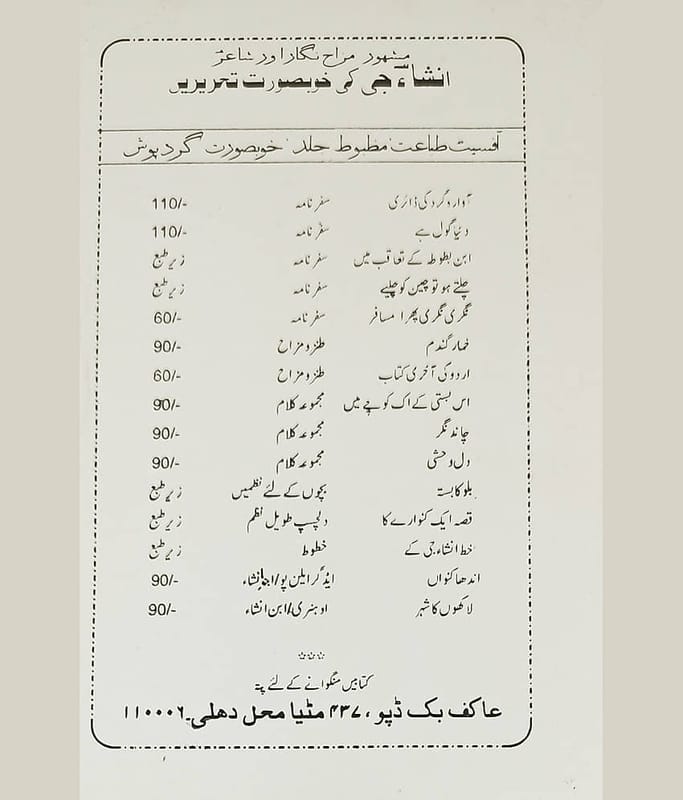 مشہور مزاح نگار اور شاعر
انشاء جی کی خوبصورت تحریریں
آفسیٹ طباعت مظبوط جلد خوبصورت گرد پوش
آوارہ گرد کی ڈائری سفرنامہ 110/-
دنیا گول ہے سفرنامہ 110/-
ابن بطوطہ کے تعاقب میں سفرنامہ زیر طبع
چلتے ہو تو چین کو چلیے سفرنامہ زیر طبع
نگری نگری پھرا مسافر سفرنامہ 60/-
خمار گندم طنز و مزاح 90/-
اردو کی آخری کتاب طنز و مزاح 60/-
اس بستی کے اک کوچے میں مجموعہ کلام 90/-
چاند نگر مجموعہ کلام 90/-
دل وحشی مجموعہ کلام 90/-
بلو کا بستہ بچوں کے لئے نظمیں زیر طبع
قصہ ایک کنوارے کا دلچسپ طویل نظم زیر طبع
خط انشاء جی کے خطوط زیر طبع
اندھا کنواں ایڈگر ایلن پو/ابن انشاء 90/-
لاکھوں کا شہر او ہنری/ابن انشاء 90/-
کتابیں منگوانے کے لئے پتہ
عاکف بک ڈپو، ۴۳۷ مٹیا محل دھلی۔۱۱۰۰۰۶